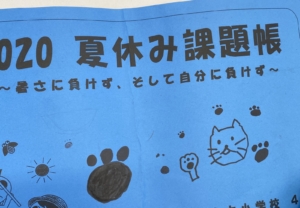 2020 夏休み課題帳
～暑さに負けず、そして自分に負けず～
小学校 4